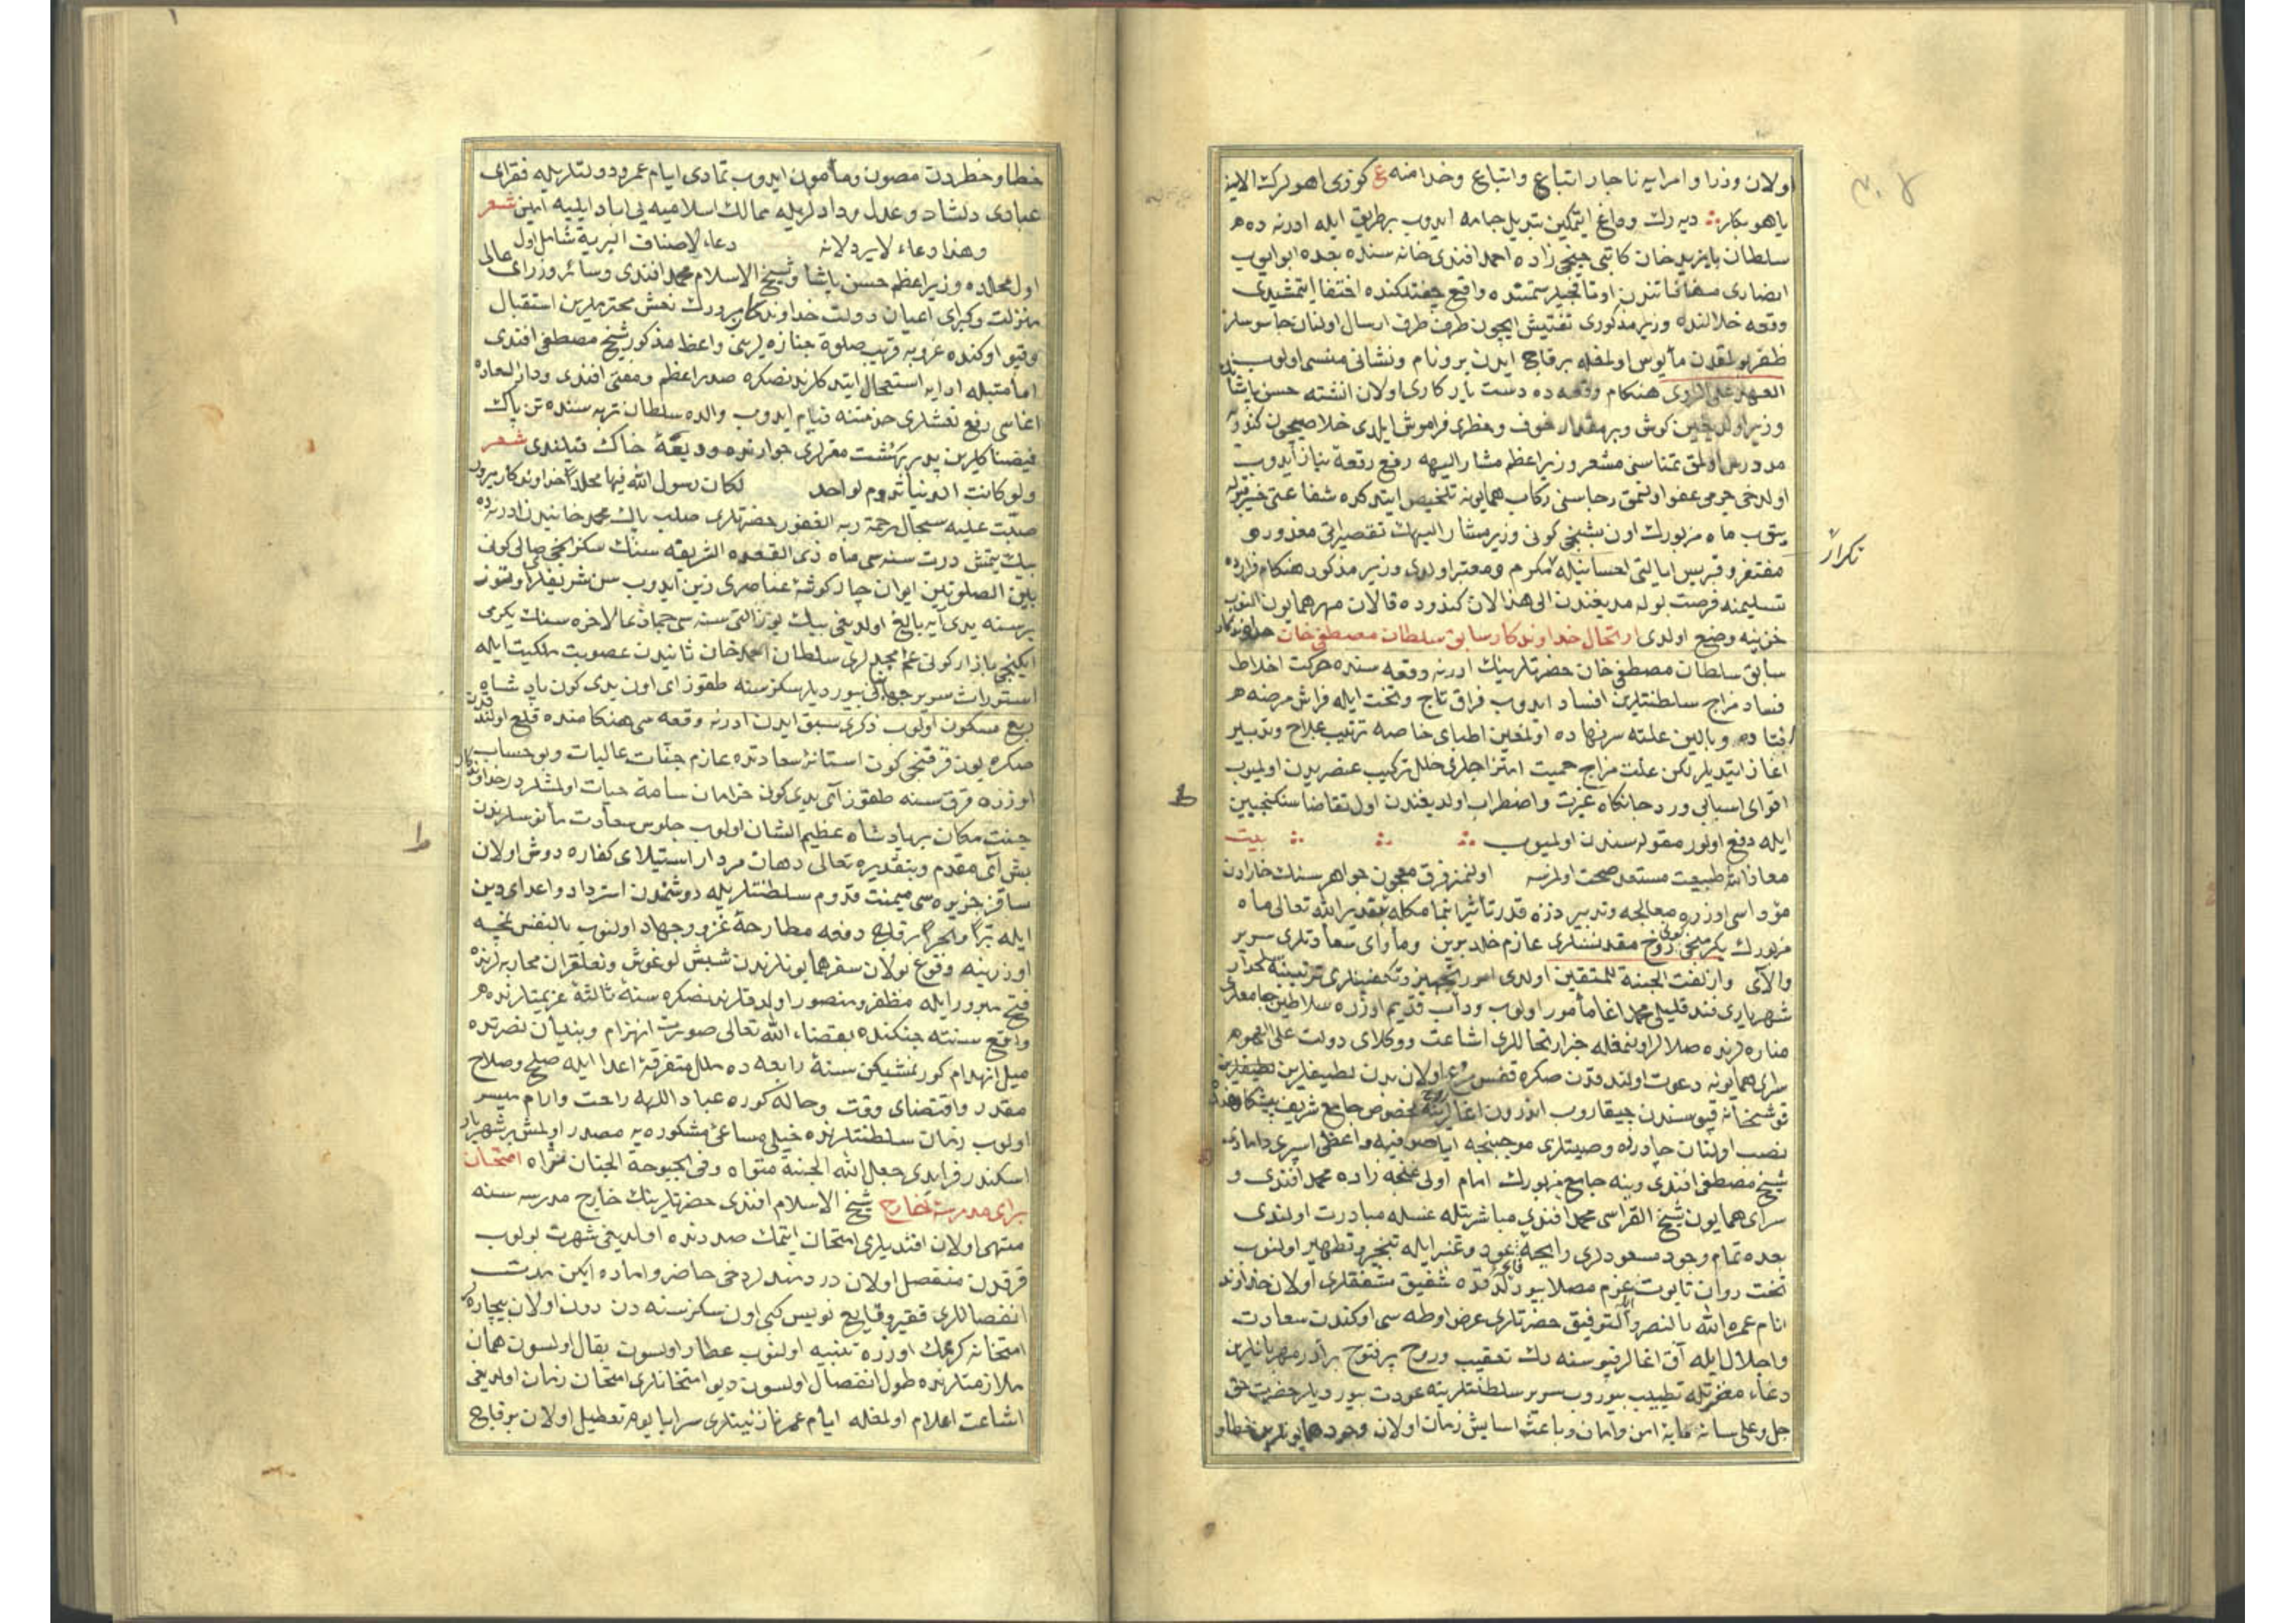 اولان وزرا و امرایه ناچار اتباع واتباع وخدامنه ع کوزی اهولرك الاینه
یاهو بکار دیه رك وداغ ایتمکین تبدیل جامه ایدوب برطریق ایله ادرنه ده
سلطان بایزید خان کاتبی چینجی زاده احمد افندی خانه سنده بعده ابو ایوب
انصاری مضافاتندن اوتاقجیلر سمتنده واقع چفتلکنده اختفا ایتمشیدی
وقعه خلالنده وزیر مذکوری تفتیش ایچون طرف طرف ارسال اولنان جاسوسلر
ظفربولمقدن مأیوس اولمغله برقاچ ایدن برو نام ونشانی منسی اولوب
العهد علی الروی هنکام وقعه ده دست یار کاری اولان انشته حسن پاشا
وزیر اولدیغین کوش وبرمقدار خوف وخطری فراموش ایلدی خلاصیچون کندویه
مددرس اولمق تمناسنی مشعر وزیراعظم مشار الیهه رفع رقعه نیاز ایدوب
اولدخی جرمی عفو اولنمق رجاسنی رکاب همایونه تلخیص ایتدکده شفاعتی
یتوب ماه مزبورك اون بشنجی کونی وزیر مشار الیهك تقصیراتی معذور
مغتفر وقبریس ایالتی احسانیله مکرم ومعتبر اولدی وزیر مذکور هنکام فرارده
تکرار
تسلیمنه فرصت بوله مدیغندن الی هذا الان کندوده قالان مهر همایون النوب
خزینه وضع اولدی ارتحال خداوندکار سابق سلطان مصطفی خان خداوندکار
سابق سلطان مصطفی خان حضرتلرینك ادرنه وقعه سنده حرکت اخلاط
فساد مزاج سلطنتلرین افساد ایدوب فراق تاج وتخت ایله فراش مرضه
افتاده وبالین علته سرنهاده اولمغین اطبای خاصه ترتیب علاج وتدبیر
اغاز ایتدیلر لکن علت مزاج حمیت امتزاجلری خلل ترکیب عنصریدن اولمیوب
اقوای اسبابی درد جانکاه عزت واضطراب اولدیغندن اول تقاضا سنکنجبین
ایله دفع اولور مقوله سندن اولمیوب بیت
معاذ الله طبیعت مستعد صحت اولمزسه اولنمز فرق معجون جواهر سنك خارادن
مؤداسی اوزره معالجه وتدبیر ذره قدر تأثیر اتمامکله بتقدیر الله تعالی ماه
مزبورك یکرمنجی کونی روح مقدسلری عازم خلد برین وماوای سعادتلری سریر
والای وازلفت الجنة للمتقین اولدی امور تجهیز وتکفینلری ترتیبنه
شهریاری فندقلیلی محمد اغا مأمور اولوب ودأب قدیم اوزره سلاطین جامعلری
مناره لرنده صلالر اولنمغله خبر ارتحاللری اشاعت ووکلای دولت علی الوجوه
سرای همایونه دعوت اولندقدن صکره قفس روح اولان بدن لطیفلرین
قوشخانه قپوسندن چیقاروب اندرون اغالرینه مخصوص جامع شریف پیشکاهنده
نصب اولنان چادرده وصیتلری موجبنجه ایاصوفیه واعظی اسپری دامادی
شیخ مصطفی افندی وینه جامع مزبورك امام اولی غنجه زاده محمد افندی و
سرای همایون شیخ القراسی محمد افندی مباشرتیله غسله مبادرت اولندی
بعده تمام وجود مسعودلری رایحه عود وعنبر ایله تبخیر وتطهیر اولنوب
تخت روان تابوت عزم مصلا بیوردقده شفیق مشفقلری اولان خداوند
انام عمره الله بالنصر والتوفیق حضرتلری عرض اوطه سی اوکندن سعادت
واجلال ایله آق اغالر قپوسنه دك تعقیب وروح پر فتوح برادر مهربانلرین
دعاء مغفرتله تطییب بیوروب سریر سلطنتلرینه عودت بیوردیلر حضرت حق
جل وعلی سایه مایه امن وامان وباعث اسایش زمان اولان وجود همایونلرین خطا و
خطا وخطردن مصون ومأمون ایدوب تمادی ایام عمر ودولتلریله فقرای
عبادی دلشاد وعدل ودادلریله ممالك اسلامیه یی اباد ایلیه امین شعر
وهذا دعاء لا یرد لانه دعاء لاصناف البریة شامل اول
اول محلده وزیراعظم حسن پاشا وشیخ الاسلام محمد افندی وسائر وزرای عالی
منزلت وکبرای اعیان دولت خداوندکار مبرورك نعش محترملرین استقبال
وقپو اوکنده غروبه قریب صلوة جنازه لرینی واعظ مذکور شیخ مصطفی افندی
امامتیله ادایه استعجال ایتدکلرندنصکره صدراعظم ومفتی افندی ودار السعاده
اغاسی رفع نعشلری خدمتنه قیام ایدوب والده سلطان تربه سنده تن پاك
فیضناکلرین پدر بهشت مقرلری جوارنده ودیعة خاك قیلندی شعر
ولو کانت الدنیا تدوم لواحد لکان رسول الله فیها مخلدا خداوندکار مبرور
صبت علیه سجال رحمة ربه الغفور حضرتلری صلب پاك محمد خانیدن ادرنه ده
بیك یتمش درت سنه سی ماه ذی القعده الشریفه سنك سکزنجی صالی کونی
بین الصلوتین ایوان چار کوشهٔ عناصری زین ایدوب سن شریفلری اوتوز
بر سنه یدی ایه بالغ اولدیغی بیك یوز التی سنه سی جماذی الاخره سنك یکرمی
ایکنجی بازار کونی عم مجیدلری سلطان احمد خان ثانیدن عصوبت ملکیت ایله
استوراث سریر جهانبانی بیوردیلر سکز سنه طقوز ای اون یدی کون پادشاه
ربع مسکون اولوب ذکری سبق ایدن ادرنه وقعه سی هنکامنده قلع اولندقدن
صکره یوز قرقنجی کون استانهٔ سعادتده عازم جنات عالیات وبو حساب
اوزره قرق سنه طقوز آی یدی کون خرامان ساحهٔ حیات اولمشلردر خداوندکار
جنت مکان بر پادشاه عظیم الشان اولوب جلوس سعادت مأنوسلرندن
بش آی مقدم وبتقدیره تعالی دهان مردار استیلای کفاره دوش اولان
ساقز جزیره سی میمنت قدوم سلطنتلریله دوشمندن استرداد واعدای دین
ایله برا وبحرا برقاچ دفعه مطارحهٔ غزو وجهاد اولنوب بالنفس نمچه
اوزرینه وقوع بولان سفر همایونلرندن شبش لوغوش وتعلقران محاربه لرنده
فتح مبرور ایله مظفر ومنصور اولدقلرندنصکره سنهٔ ثالثه عزیمتلرنده
واقع سنته جنکنده بقضاء الله تعالی صورت انهزام وبنیان نصرتده
میل انهدام کورنمشیکن سنهٔ رابعه ده ملل متفرقهٔ اعدا ایله صلح وصلاح
مقدر واقتضای وقت وحاله کوره عباد اللهه راحت وارام میسر
اولوب زمان سلطنتلرنده خیلی مساعی مشکوره یه مصدر اولمش بر شهریار
اسکندر فر ایدی جعل الله الجنة مثواه وفی بحبوحة الجنان مأواه امتحان
برای مدرسهٔ خارج شیخ الاسلام افندی حضرتلرینك خارج مدرسه سنه
منتهی اولان افندیلری امتحان ایتمك صددنده اولدیغی شهرت بولوب
قرقدن منفصل اولان دردمندلر دخی حاضر واماده ایکن مدت
انفصاللری فقیر وقایع نویس کبی اون سکز سنه دن دون اولان بیچاره لر
امتحانه کرمامك اوزره تنبیه اولنوب عطار اولسون بقال اولسون همان
ملازمتلرنده طول انفصال اولسون دیو امتحانلری امتحان زمان اولدیغی
اشاعت اعلام اولمغله ایام عمر نازنینلری سراپا یوم تعطیل اولان برقاچ